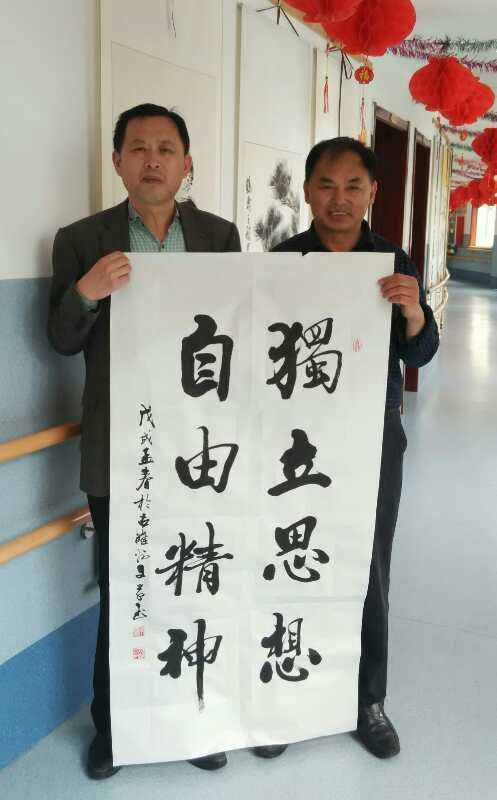 獨立思想
自由精神
戊戌孟春於古雎陽